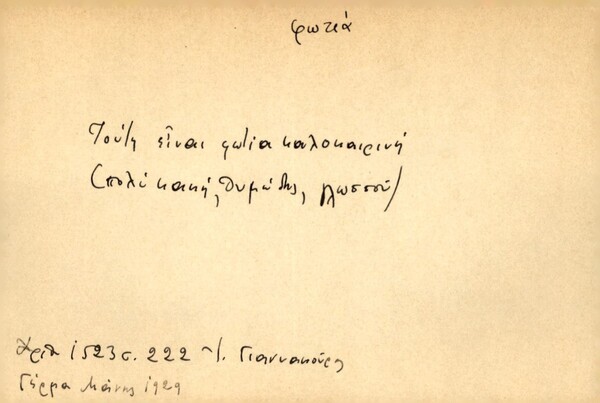 φωτιά
Τούτη εἶναι φωτια καλοκαιρινή
(πολύ κακή, θυμώδης, γλωσσού)
Ἀριθ 1523 σ. 222 Γιαννακούρης
Γέρμα Μάνης 1929